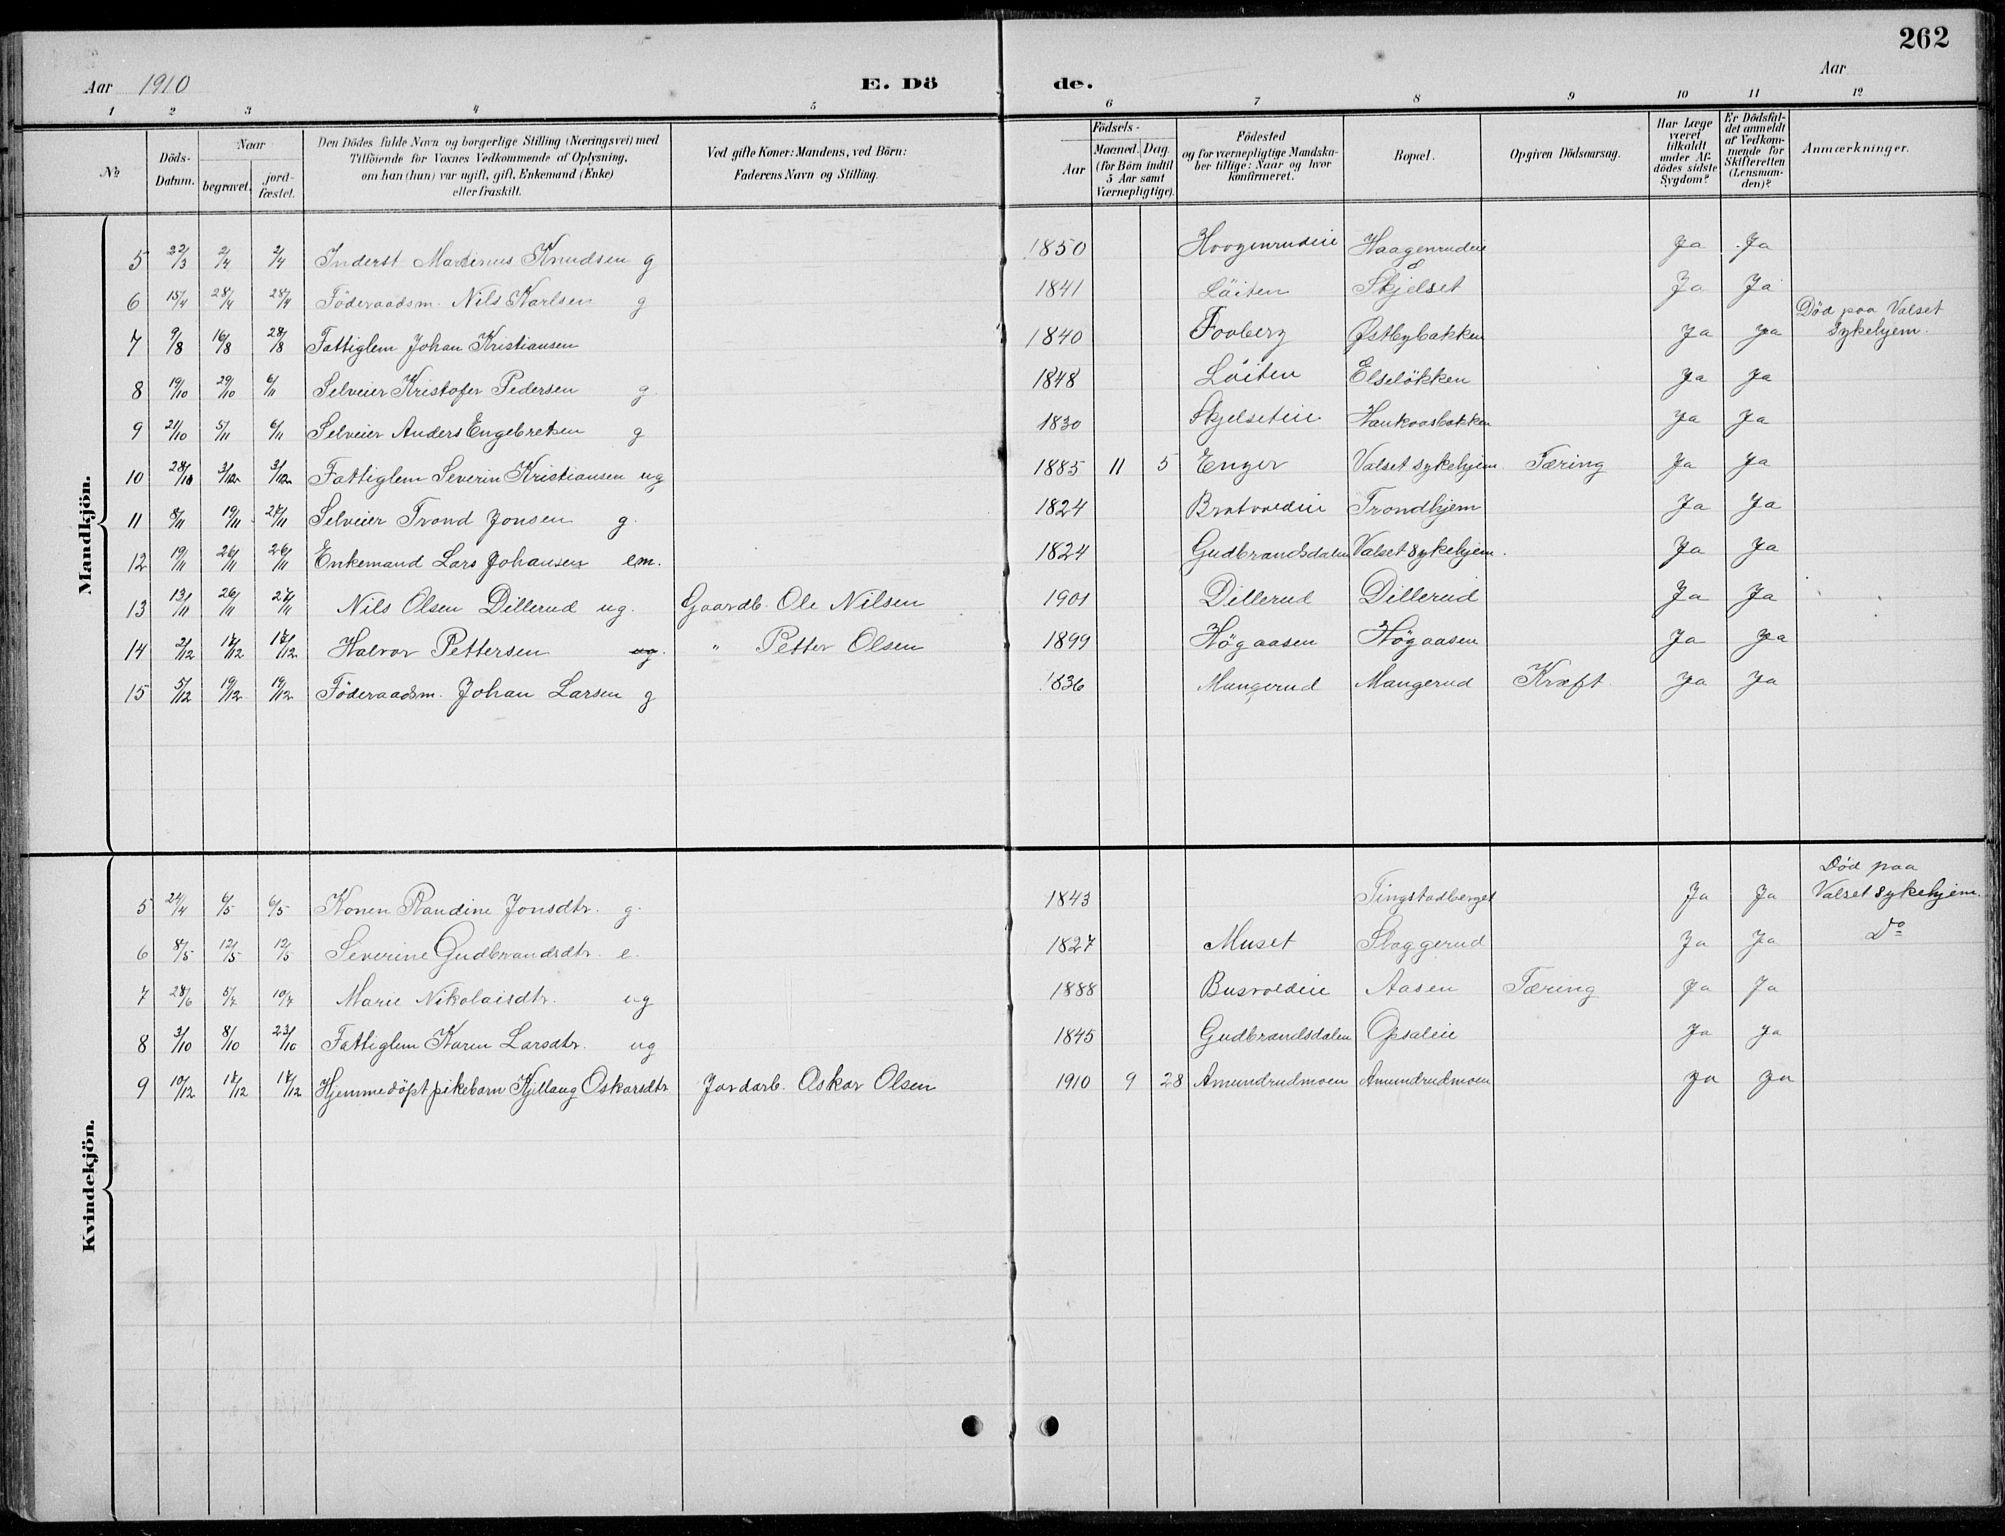 262
Aar 1910 E. Dö de. Aar
1 2 3 4 5 6 7 8 9 10 11 12
No
Döds-Datum.
Naar
begravet.
jord-fæstet.
Den Dödes fulde Navn og borgerlige Stilling (Næringsvei) med
Tilföiende for Voxnes Vedkommende af Oplysning,
om han (hun) var ugift, gift, Enkemand (Enke)
eller fraskilt.
Ved gifte Koner: Mandens, ved Börn:
Faderens Navn og Stilling.
Födsels-
Aar
Maaned. Dag.
(for Börn indtil
5 Aar samt
Værnepligtige).
Födested
og for værnepligtige Mandska-
ber tillige: Naar og hvor
konfirmeret.
Bopæl.
Opgiven Dödsaarsag.
Har Læge
været
tilkaldt
under Af-
dödes sidste
Sygdom?
Er Dödsfal-
det anmeldt
af Vedkom-
mende for
Skifteretten
(Lensman-
den)?
Anmærkninger.
Mandkjön.
5 22/3 2/4 2/4 Inderst Martinus Knudsen g 1850 Haagenrudeie Haagenrudeie Ja Ja
6 15/4 28/4 28/4 Föderaadsm. Nils Karlsen g 1841 Löiten Skjelset Ja Ja
7 9/8 16/8 28/8 Fattiglem Johan Kristiansen 1840 Faaberg Østbybakken Ja Ja Død paa Valset
Sykehjem.
8 19/10 29/10 6/11 Selveier Kristofer Pedersen g 1848 Löiten Elseløkken Ja Ja
9 21/10 5/11 6/11 Selveier Anders Engebretsen g 1830 Skjelseteie Haukaasbakken Ja Ja
10 28/10 3/12 3/12 Fattiglem Severin Kristiansen ug 1885 11 5 Enger Valset sykehjem Tæring Ja Ja
11 8/11 19/11 28/11 Selveier Trond Jonsen g. 1824 Bratvoldeie Trondhjem Ja Ja
12 19/11 26/11 26/11 Enkemand Lars Johansen em. 1824 Gudbrandsdalen Valset Sykehjem. Ja Ja
13 13/11 26/11 27/11 Nils Olsen Dillerud ug. Gaardb. Ole Nilsen 1901 Dillerud Dillerud Ja Ja
14 2/12 17/12 17/12 Halvor Pettersen ug. " Petter Olsen 1899 Høgaasen Høgaasen Ja Ja
15 5/12 19/12 19/12 Föderaadsm. Johan Larsen g 1836 Mangerud Mangerud Kræft. Ja Ja
Kvindekjön.
5 24/4 6/5 6/5 Konen Randine Jonsdtr. g. 1843 Tingstadberget Ja Ja Død paa
Valset sykehjem.
6 8/5 12/5 12/5 Severine Gudbrandsdtr. e. 1827 Muset Slaggerud Ja Ja Do
7 28/6 5/7 10/7 Marie Nikolaisdtr. ug 1888 Busvoldeie Aasen Tæring Ja Ja
8 3/10 8/10 23/10 Fattiglem Karen Larsdtr. ug 1845 Gudbrandsdalen Opsaleie Ja Ja
9 10/12 17/12 17/12 Hjemmedöpt pikebarn Kjellaug Oskarsdtr Jordarb. Oskar Olsen 1910 9 28 Amundrudmoen Amundrudmoen Ja Ja